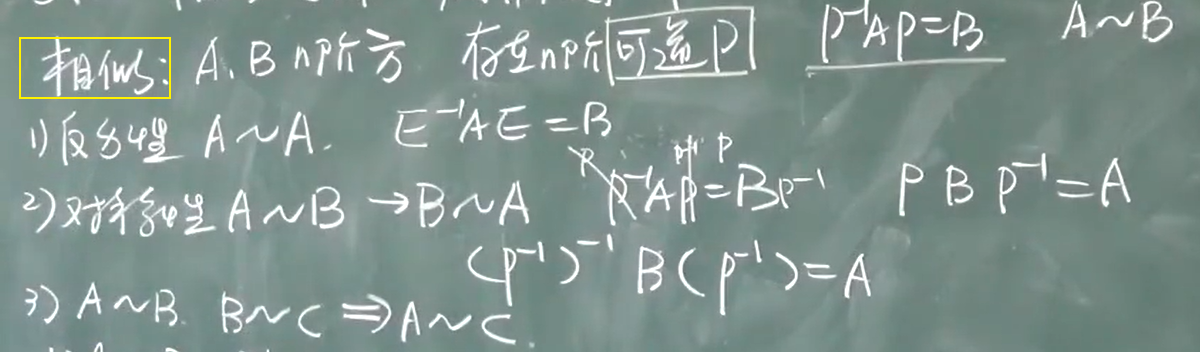 相似: A、B n阶方 存在n阶可逆P P⁻¹AP=B A~B
1) 反身性 A~A. E⁻¹AE=B
2) 对称性 A~B →B~A P P⁻¹AP P⁻¹=P BP⁻¹ P B P⁻¹=A
(P⁻¹)⁻¹ B(P⁻¹)=A
3) A~B. B~C ⇒A~C.